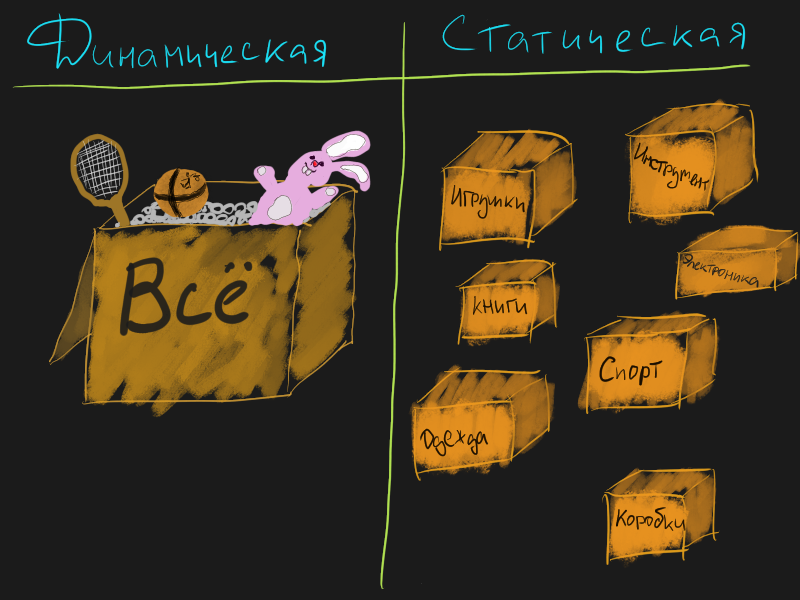 Динамическая
Статическая
Всё
Игрушки
Инструмент
Электроника
Книги
Спорт
Одежда
Коробки